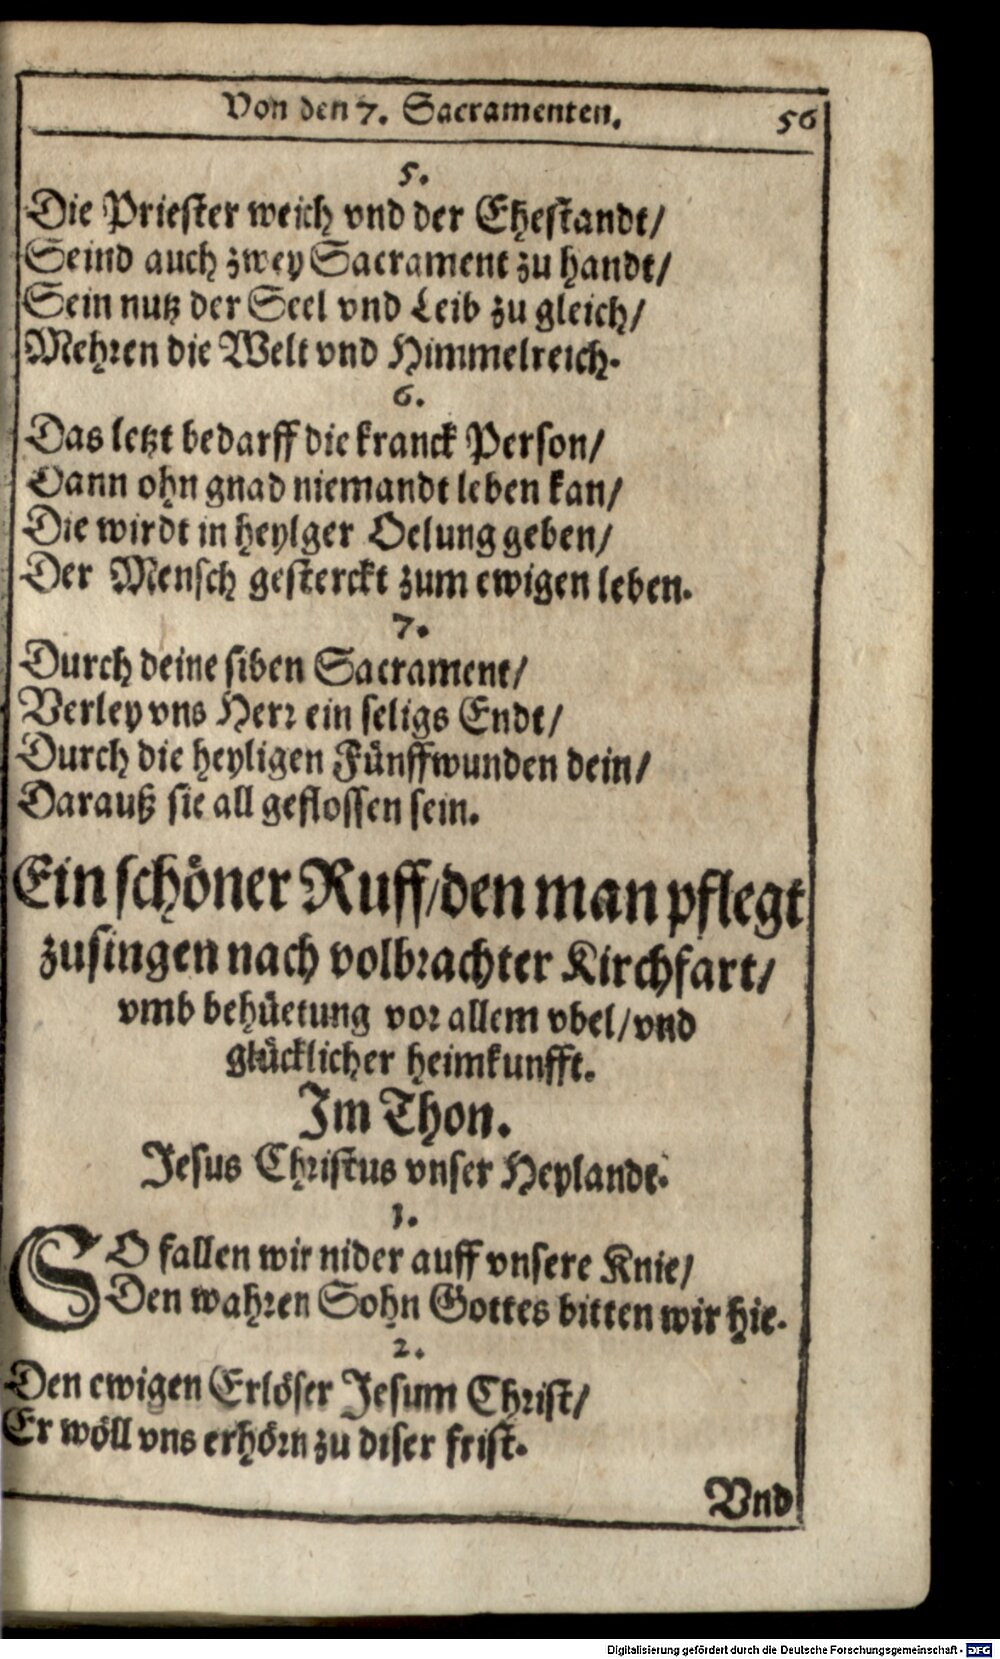 Von den 7. Sacramenten. 56
5.
Die Priester weich vnd der Ehestandt/
Seind auch zwey Sacrament zu handt/
Sein nutz der Seel vnd Leib zu gleich/
Mehren die Welt vnd Himmelreich.
6.
Das letzt bedarff die kranck Person/
Dann ohn gnad niemandt leben kan/
Die wirdt in heylger Oelung geben/
Der Mensch gesterckt zum ewigen leben.
7.
Durch deine siben Sacrament/
Verley vns Herr ein seligs Endt/
Durch die heyligen Fünffwunden dein/
Darauß sie all geflossen sein.
Ein schöner Ruff/den man pflegt
zusingen nach volbrachter Kirchfart/
vmb behüetung vor allem vbel/vnd
glücklicher heimkunfft.
Im Thon.
Jesus Christus vnser Heylandt.
1.
SO fallen wir nider auff vnsere Knie/
Den wahren Sohn Gottes bitten wir hie.
2.
Den ewigen Erlöser Jesum Christ/
Er wöll vns erhörn zu diser frist.
Vnd
Digitalisierung gefördert durch die Deutsche Forschungsgemeinschaft - DFG